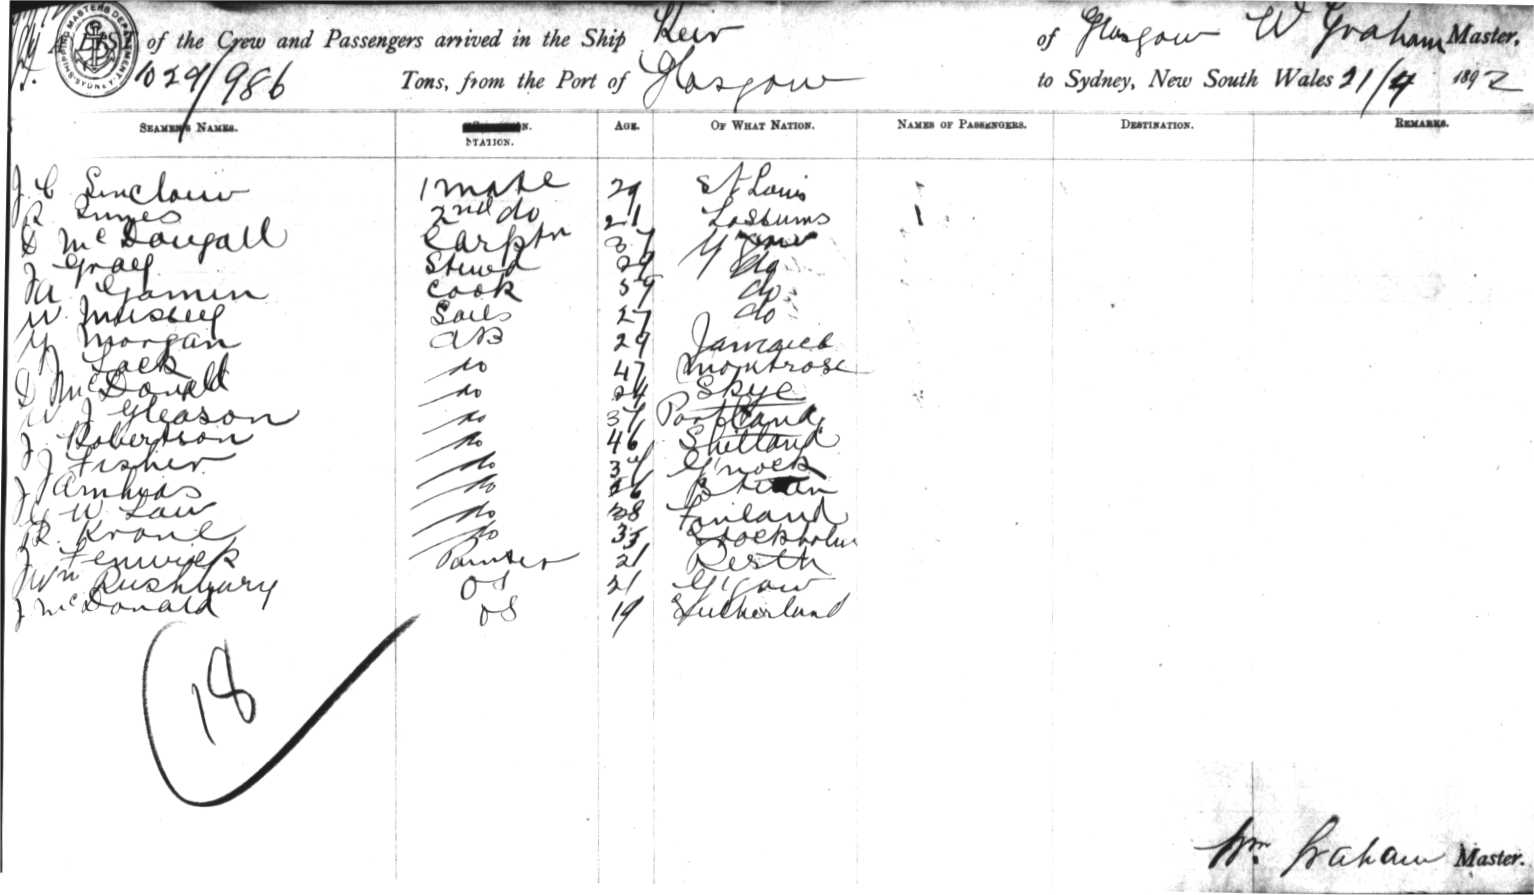 of the Crew and Passengers arrived in the Ship Keir of Glasgow W Graham Master,
1029/986 Tons, from the Port of Glasgow to Sydney, New South Wales 21/4 1892
SHIPPING MASTERS DEPARTMENT SYDNEY
SEAMEN'S NAMES. STATION. AGE. OF WHAT NATION. NAMES OF PASSENGERS. DESTINATION. REMARKS.
J C Sinclair 1 mate 29 St Louis
R Innes 2nd do 21
D McDougall Carptr 37
J Gray Stewd 29 do
Cook 59 do
W Sails 27 do
Morgan AB 29 Jamaica
J Lack do 47 Montrose
D McDonald do 24 Skye
W J Gleason do 37 Portland
J Robertson do 46 Shetland
J Fisher do 37 G'nock
J do 26
W Law do 38 Finland
R. Krone do 35 Stockholm
J Fenwick Painter 21 Perth
Wm OS 21 G'gow
J McDonald OS 19 Sutherland
18
Wm. Graham Master.